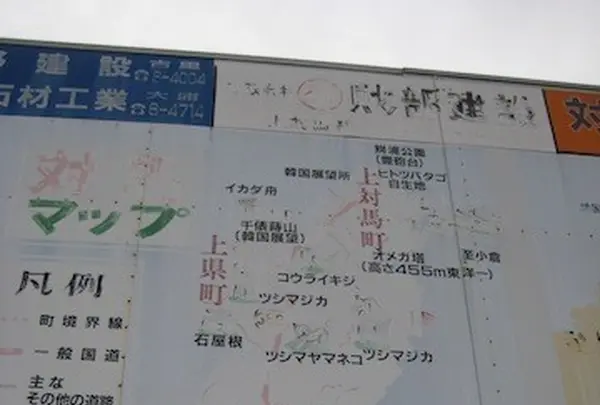 建設 吉里
☎8-4004
石材工業 大浦
☎8-4714
財部建設
対
マップ
凡例
町境界線
一般国道
主な
その他の道路
韓国展望所
(豊砲台)
ヒトツバタゴ
自生地
イカダ舟
上対馬町
千俵蒔山
(韓国展望)
上県町
オメガ塔
(高さ455m東洋一)
至小倉
コウライキジ
ツシマジカ
石屋根
ツシマヤマネコ
ツシマジカ